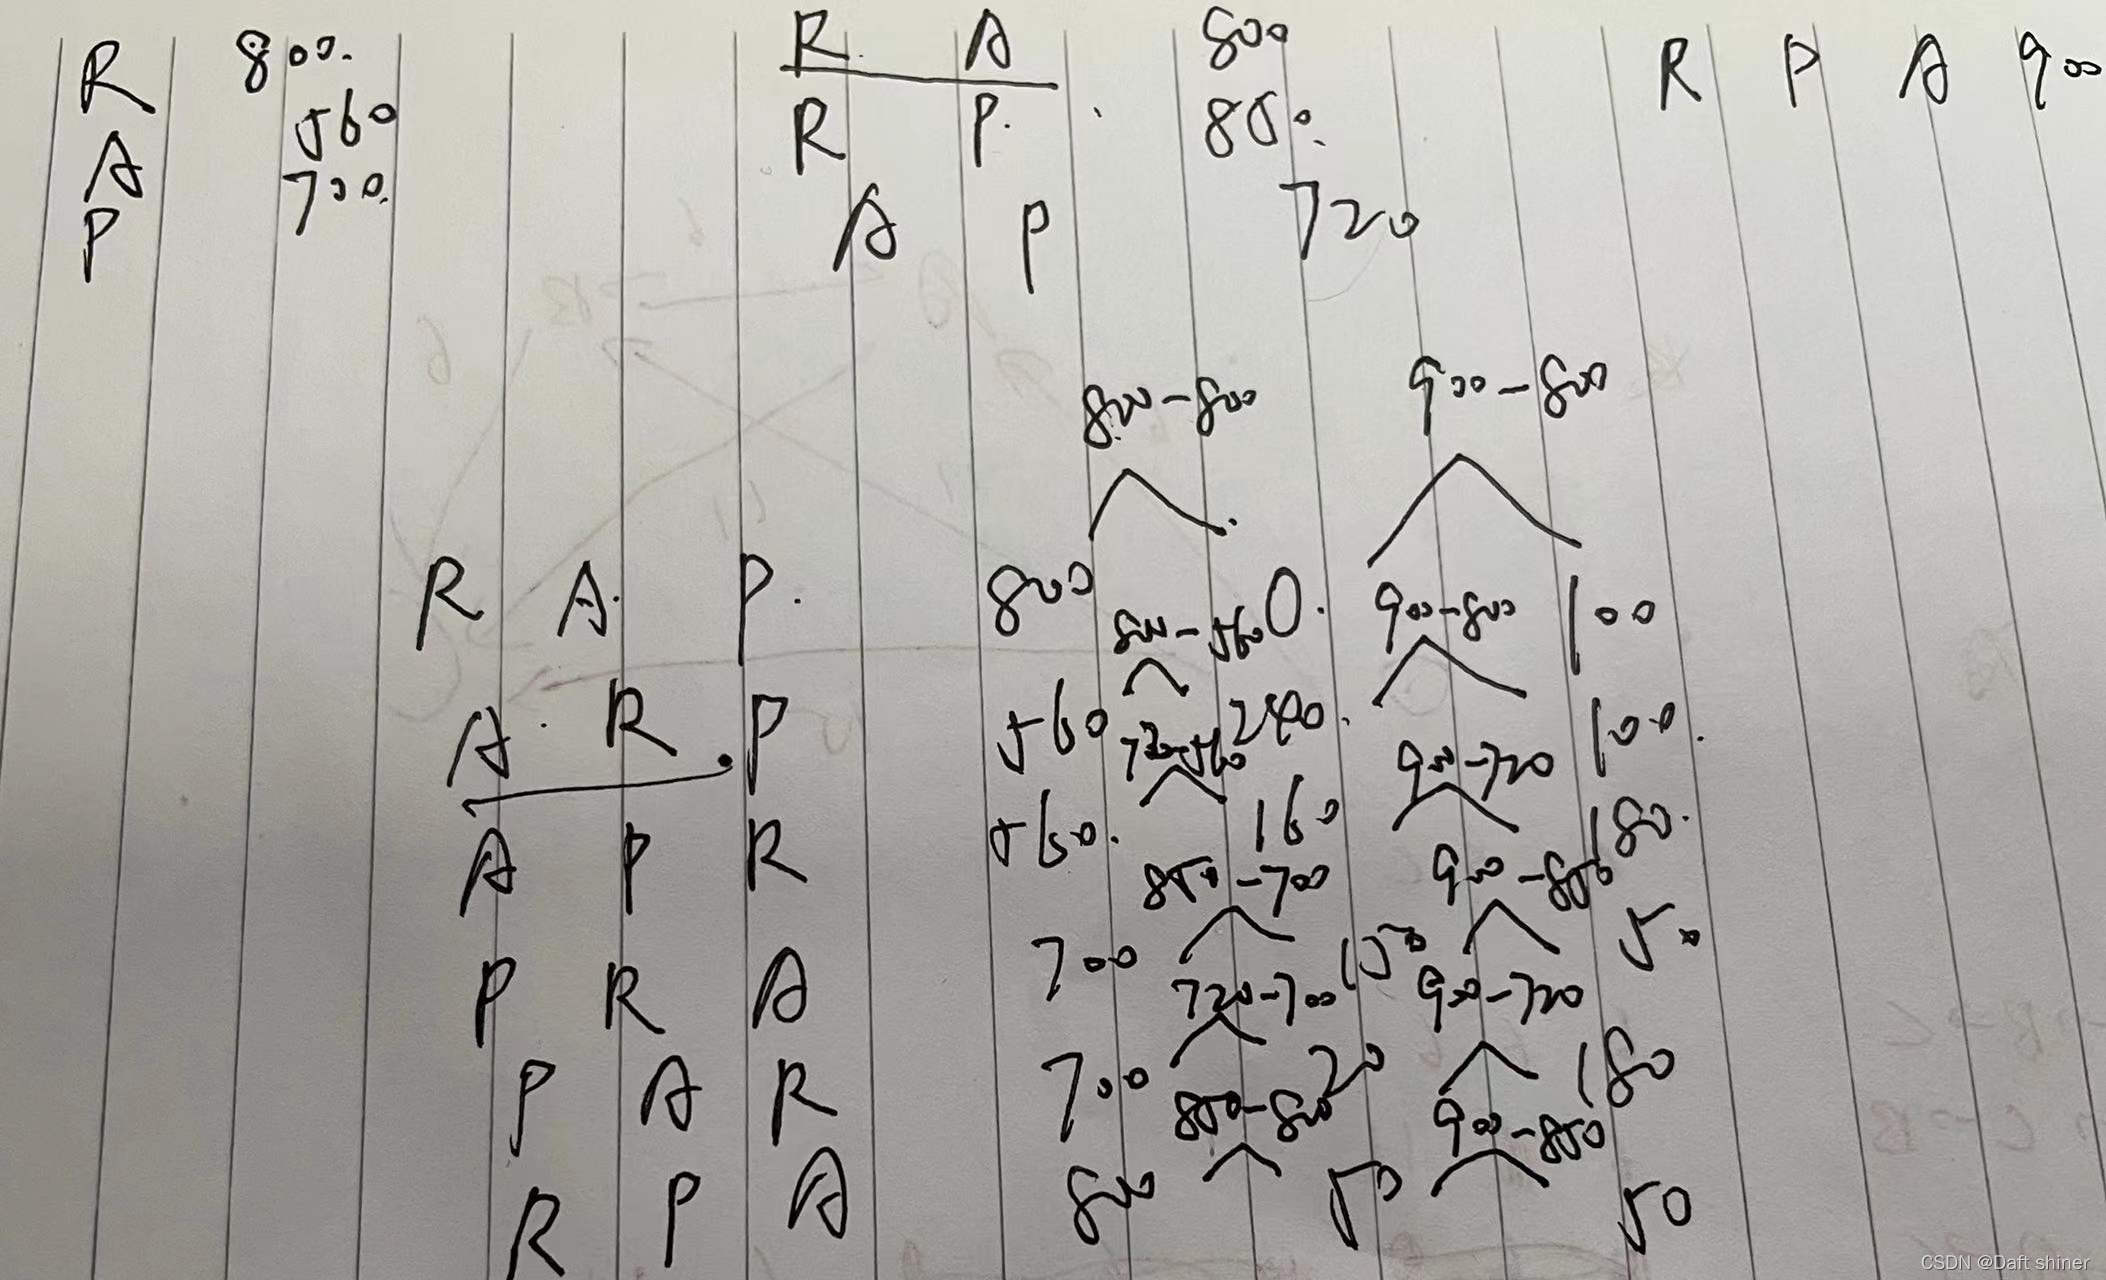 R 800.
A 560
P 700.
R. A 800
R P. 850.
A P 720
R P A 900
800-800 900-800
R A. P. 800 0. 100
800-560 900-800
A. R .P 560 240. 100.
720-560 900-720
A P R 560. 160 180.
850-700 900-850
P R A 700 150 50
720-700 900-720
P A R 700 20 180
850-800 900-850
R P A 800 50 50
CSDN @Daft shiner